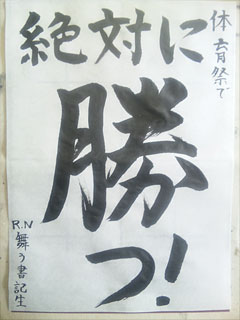 体育祭で
絶対に
勝つ!
R.N舞う書記生